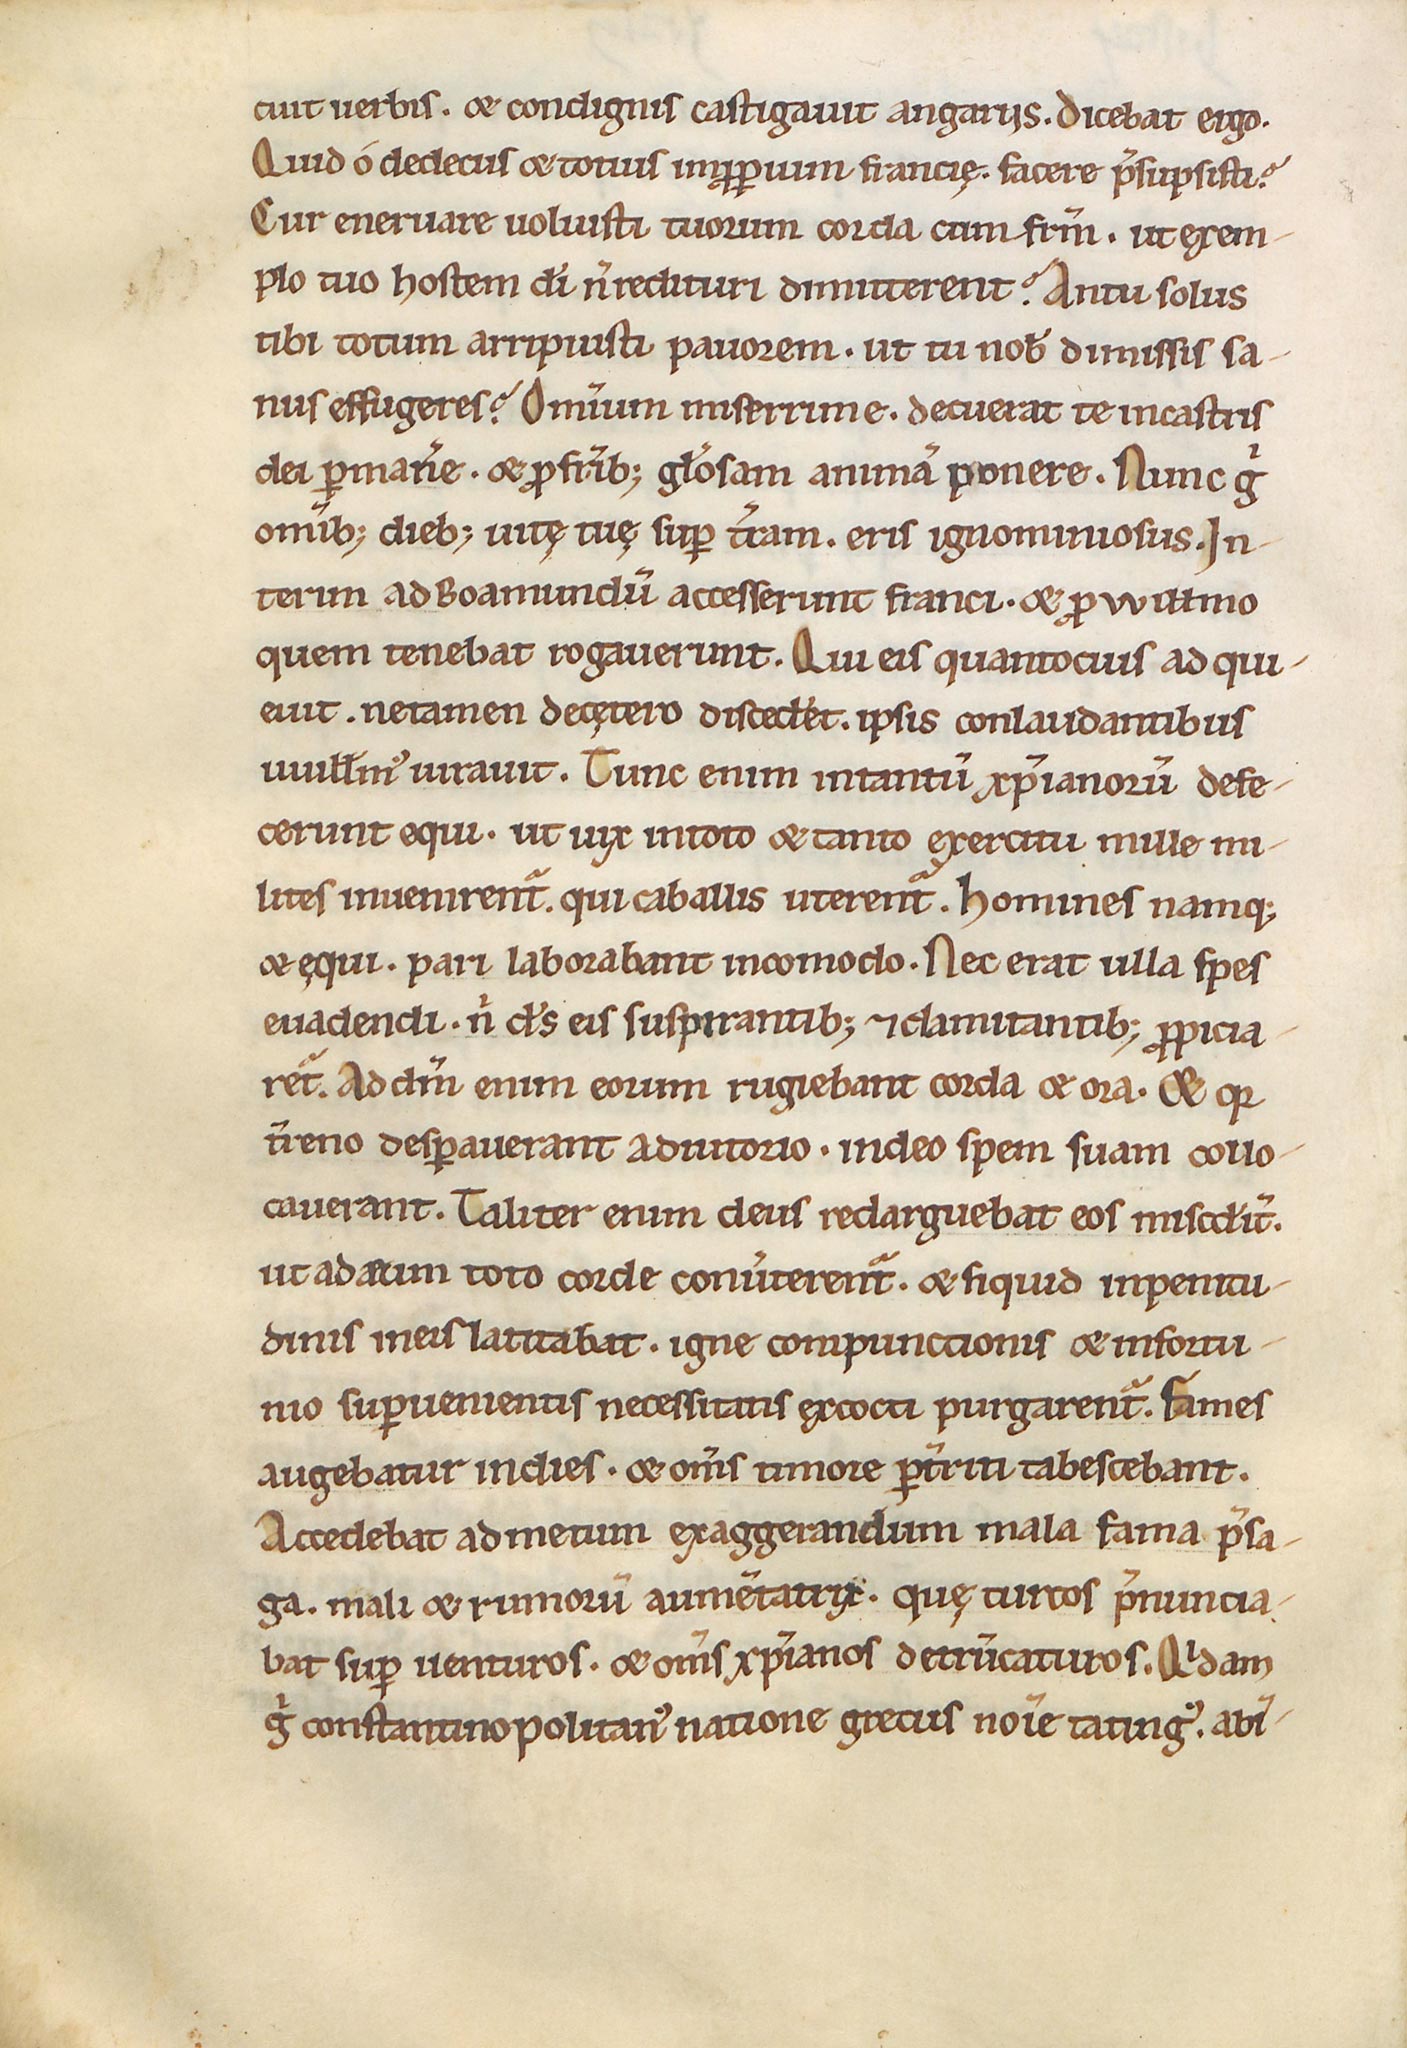 cuit uerbis. & condignis castigauit angariis. Dicebat ergo.
Quid ó dedecus & totius inpperium francię. facere p̄supsisti?
Cur eneruare uoluisti tuorum corda cum frm̄. ut exem-
plo tuo hostem dī n̄ redituri dimitterent? An tu solus
tibi totum arripuisti pauorem. ut tu nob̄ dimissis sa-
nus effugeres? Omium miserrime. decuerat te incastris
dei ꝑman̄e. & ꝓ frīb; gl̄osam animā ponere. Nunc gͥ
omīb; dieb; uitę tuę suꝑ t̄ram. eris ignominiosus. In-
terim ad Boamundū accesserunt franci. & ꝓ Willmo
quem tenebat rogauerunt. Qui eis quantocius ad qui-
euit. netamen decętero disced̄et. ipsis conlaudantibus
uuillmꝰ iurauit. Tunc enim intantū xp̄ianorū defe-
cerunt equi. ut uix intoto & tanto exercitu mille mi-
lites inuenirent᷑. qui caballis uterent᷑. Homines namq;
& ęqui. pari laborabant incomodo. Nec erat ulla spes
euadendi. nͥ d̄s eis suspirantib; ⁊ clamitantib; ꝓpicia-
ret᷑. Ad dm̄ enim eorum rugiebant corda & ora. & qꝛ
t̄reno desꝑauerant adiutorio. indeo spem suam collo-
cauerant. Taliter enim deus redarguebat eos miscd̄it᷑.
ut ad eum toto corde conūterent᷑. & siquid inpenitu-
dinis in eis latitabat. igne compunctionis & infortu-
nio suꝑuenientis necessitatis excocti purgarent᷑. Fames
augebatur indies. & om̄s timore ꝑt̄riti tabescebant.
Accedebat ad metum exaggerandum mala fama p̄sa-
ga. mali & rumorū aumēntatrix. quę turcos p̄nuncia-
bat suꝑ uenturos. & om̄s xp̄ianos detrūcaturos. Qͥdam
gͥ constantinopolitanꝰ natione grecus noīe tatingꝰ. abī-